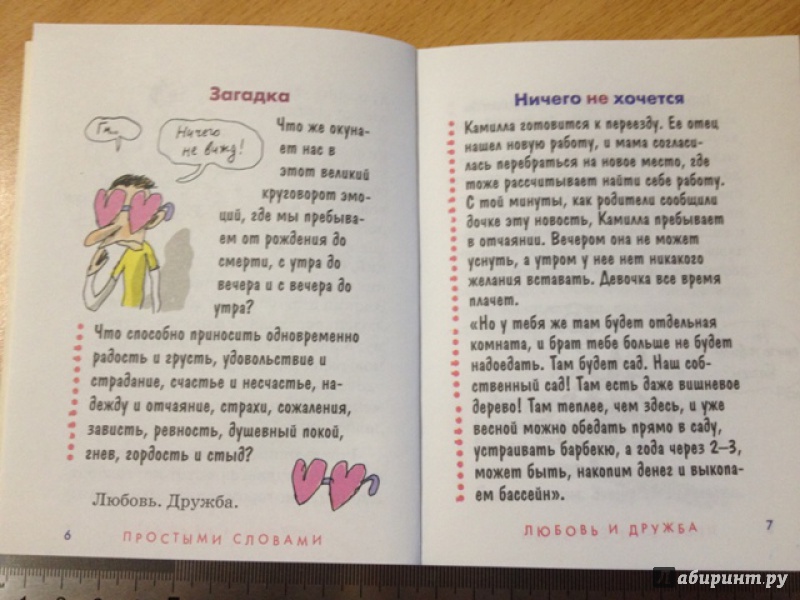 Загадка
Гм..
Ничего
не вижу!
Что же окуна-
ет нас в
этот великий
круговорот эмо-
ций, где мы пребыва-
ем от рождения до
смерти, с утра до
вечера и с вечера до
утра?
Что способно приносить одновременно
радость и грусть, удовольствие и
страдание, счастье и несчастье, на-
дежду и отчаяние, страхи, сожаления,
зависть, ревность, душевный покой,
гнев, гордость и стыд?
Любовь. Дружба.
6 ПРОСТЫМИ СЛОВАМИ
Ничего не хочется
Камилла готовится к переезду. Ее отец
нашел новую работу, и мама согласи-
лась перебраться на новое место, где
тоже рассчитывает найти себе работу.
С той минуты, как родители сообщили
дочке эту новость, Камилла пребывает
в отчаянии. Вечером она не может
уснуть, а утром у нее нет никакого
желания вставать. Девочка все время
плачет.
«Но у тебя же там будет отдельная
комната, и брат тебе больше не будет
надоедать. Там будет сад. Наш соб-
ственный сад! Там есть даже вишневое
дерево! Там теплее, чем здесь, и уже
весной можно обедать прямо в саду,
устраивать барбекю, а года через 2–3,
может быть, накопим денег и выкопа-
ем бассейн».
ЛЮБОВЬ И ДРУЖБА 7
Лабиринт.ру